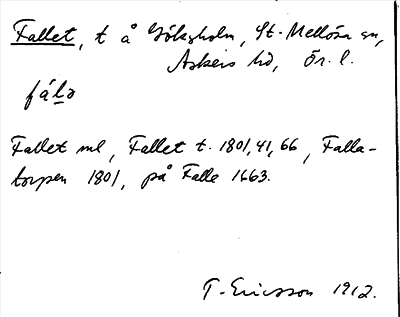 Fallet, t å Göksholm, St. Mellösa sn,
Askers hd, Ör. l.
fálə
Fallet ml, Fallet t. 1801, 41, 66, Falla-
torpen 1801, på Falle 1663.
T. Ericsson 1912.